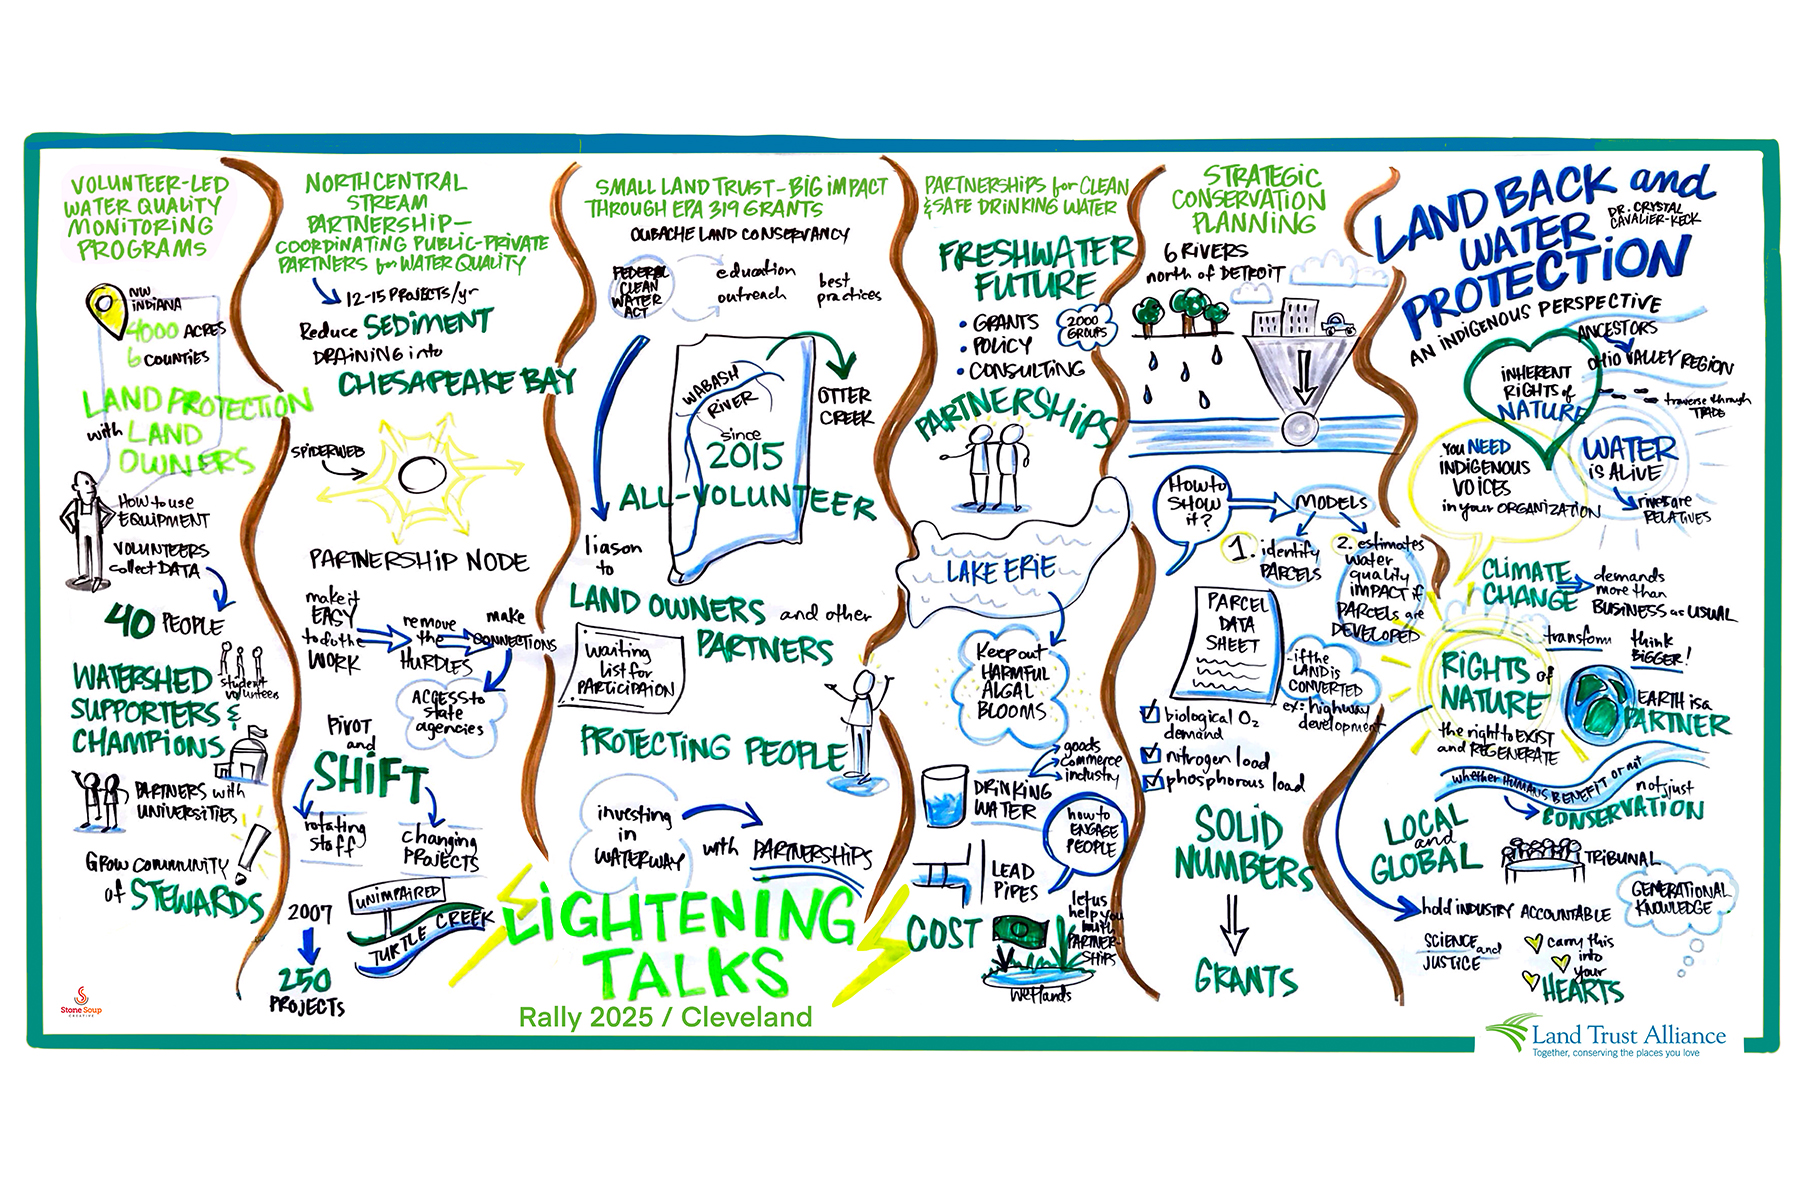 VOLUNTEER-LED
WATER QUALITY
MONITORING
PROGRAMS
NW
INDIANA
4000 ACRES
6 COUNTIES
LAND PROTECTION
with LAND
OWNERS
HOW to USE
EQUIPMENT
VOLUNTEERS
collect DATA
40 PEOPLE
student
volunteers
WATERSHED
SUPPORTERS &
CHAMPIONS
PARTNERS with
UNIVERSITIES
GROW COMMUNITY
of STEWARDS
Stone Soup
CREATIVE
NORTHCENTRAL
STREAM
PARTNERSHIP—
COORDINATING PUBLIC-PRIVATE
PARTNERS for WATER QUALITY
12-15 PROJECTS/yr
Reduce SEDIMENT
DRAINING into
CHESAPEAKE BAY
SPIDERWEB
PARTNERSHIP NODE
make it
EASY
to do the
WORK
remove
the
HURDLES
make
CONNECTIONS
ACCESS to
state
agencies
PIVOT
and
SHIFT
rotating
staff
changing
PROJECTS
2007
250
PROJECTS
UNIMPAIRED
TURTLE CREEK
SMALL LAND TRUST - BIG IMPACT
THROUGH EPA 319 GRANTS
OUBACHE LAND CONSERVANCY
FEDERAL
CLEAN
WATER
ACT
education
outreach
best
practices
WABASH
RIVER
OTTER
CREEK
since
2015
ALL-VOLUNTEER
liason
to
LAND OWNERS and other
PARTNERS
waiting
list for
PARTICIPATION
PROTECTING PEOPLE
investing
in
WATERWAY
with PARTNERSHIPS
LIGHTENING
TALKS
Rally 2025 / Cleveland
PARTNERSHIPS for CLEAN
& SAFE DRINKING WATER
FRESHWATER
FUTURE
• GRANTS
• POLICY
• CONSULTING
2000
GROUPS
PARTNERSHIPS
LAKE ERIE
Keep out
HARMFUL
ALGAL
BLOOMS
goods
commerce
industry
DRINKING
WATER
how to
ENGAGE
PEOPLE
LEAD
PIPES
COST
let us
help you
with
PARTNER-
SHIPS
wetlands
STRATEGIC
CONSERVATION
PLANNING
6 RIVERS
north of DETROIT
How to
SHOW
it?
MODELS
1. identify
PARCELS
2. estimates
water
quality
IMPACT if
PARCELS are
DEVELOPED
PARCEL
DATA
SHEET
-if the
LAND is
CONVERTED
ex: highway
development
biological O2
demand
nitrogen load
phosphorous load
SOLID
NUMBERS
GRANTS
LAND BACK and
WATER
PROTECTION
DR. CRYSTAL
CAVALIER-KECK
AN INDIGENOUS PERSPECTIVE
ANCESTORS
OHIO VALLEY REGION
traverse through
TRADE
INHERENT
RIGHTS of
NATURE
YOU NEED
INDIGENOUS
VOICES
in your ORGANIZATION
WATER
is ALIVE
rivers are
RELATIVES
CLIMATE
CHANGE
demands
more than
BUSINESS as USUAL
transform
think
BIGGER!
RIGHTS of
NATURE
the right to EXIST
and REGENERATE
EARTH is a
PARTNER
whether HUMANS BENEFIT or not
not just
CONSERVATION
LOCAL
and
GLOBAL
TRIBUNAL
GENERATIONAL
KNOWLEDGE
hold INDUSTRY ACCOUNTABLE
SCIENCE and
JUSTICE
carry this
into
your
HEARTS
Land Trust Alliance
Together, conserving the places you love